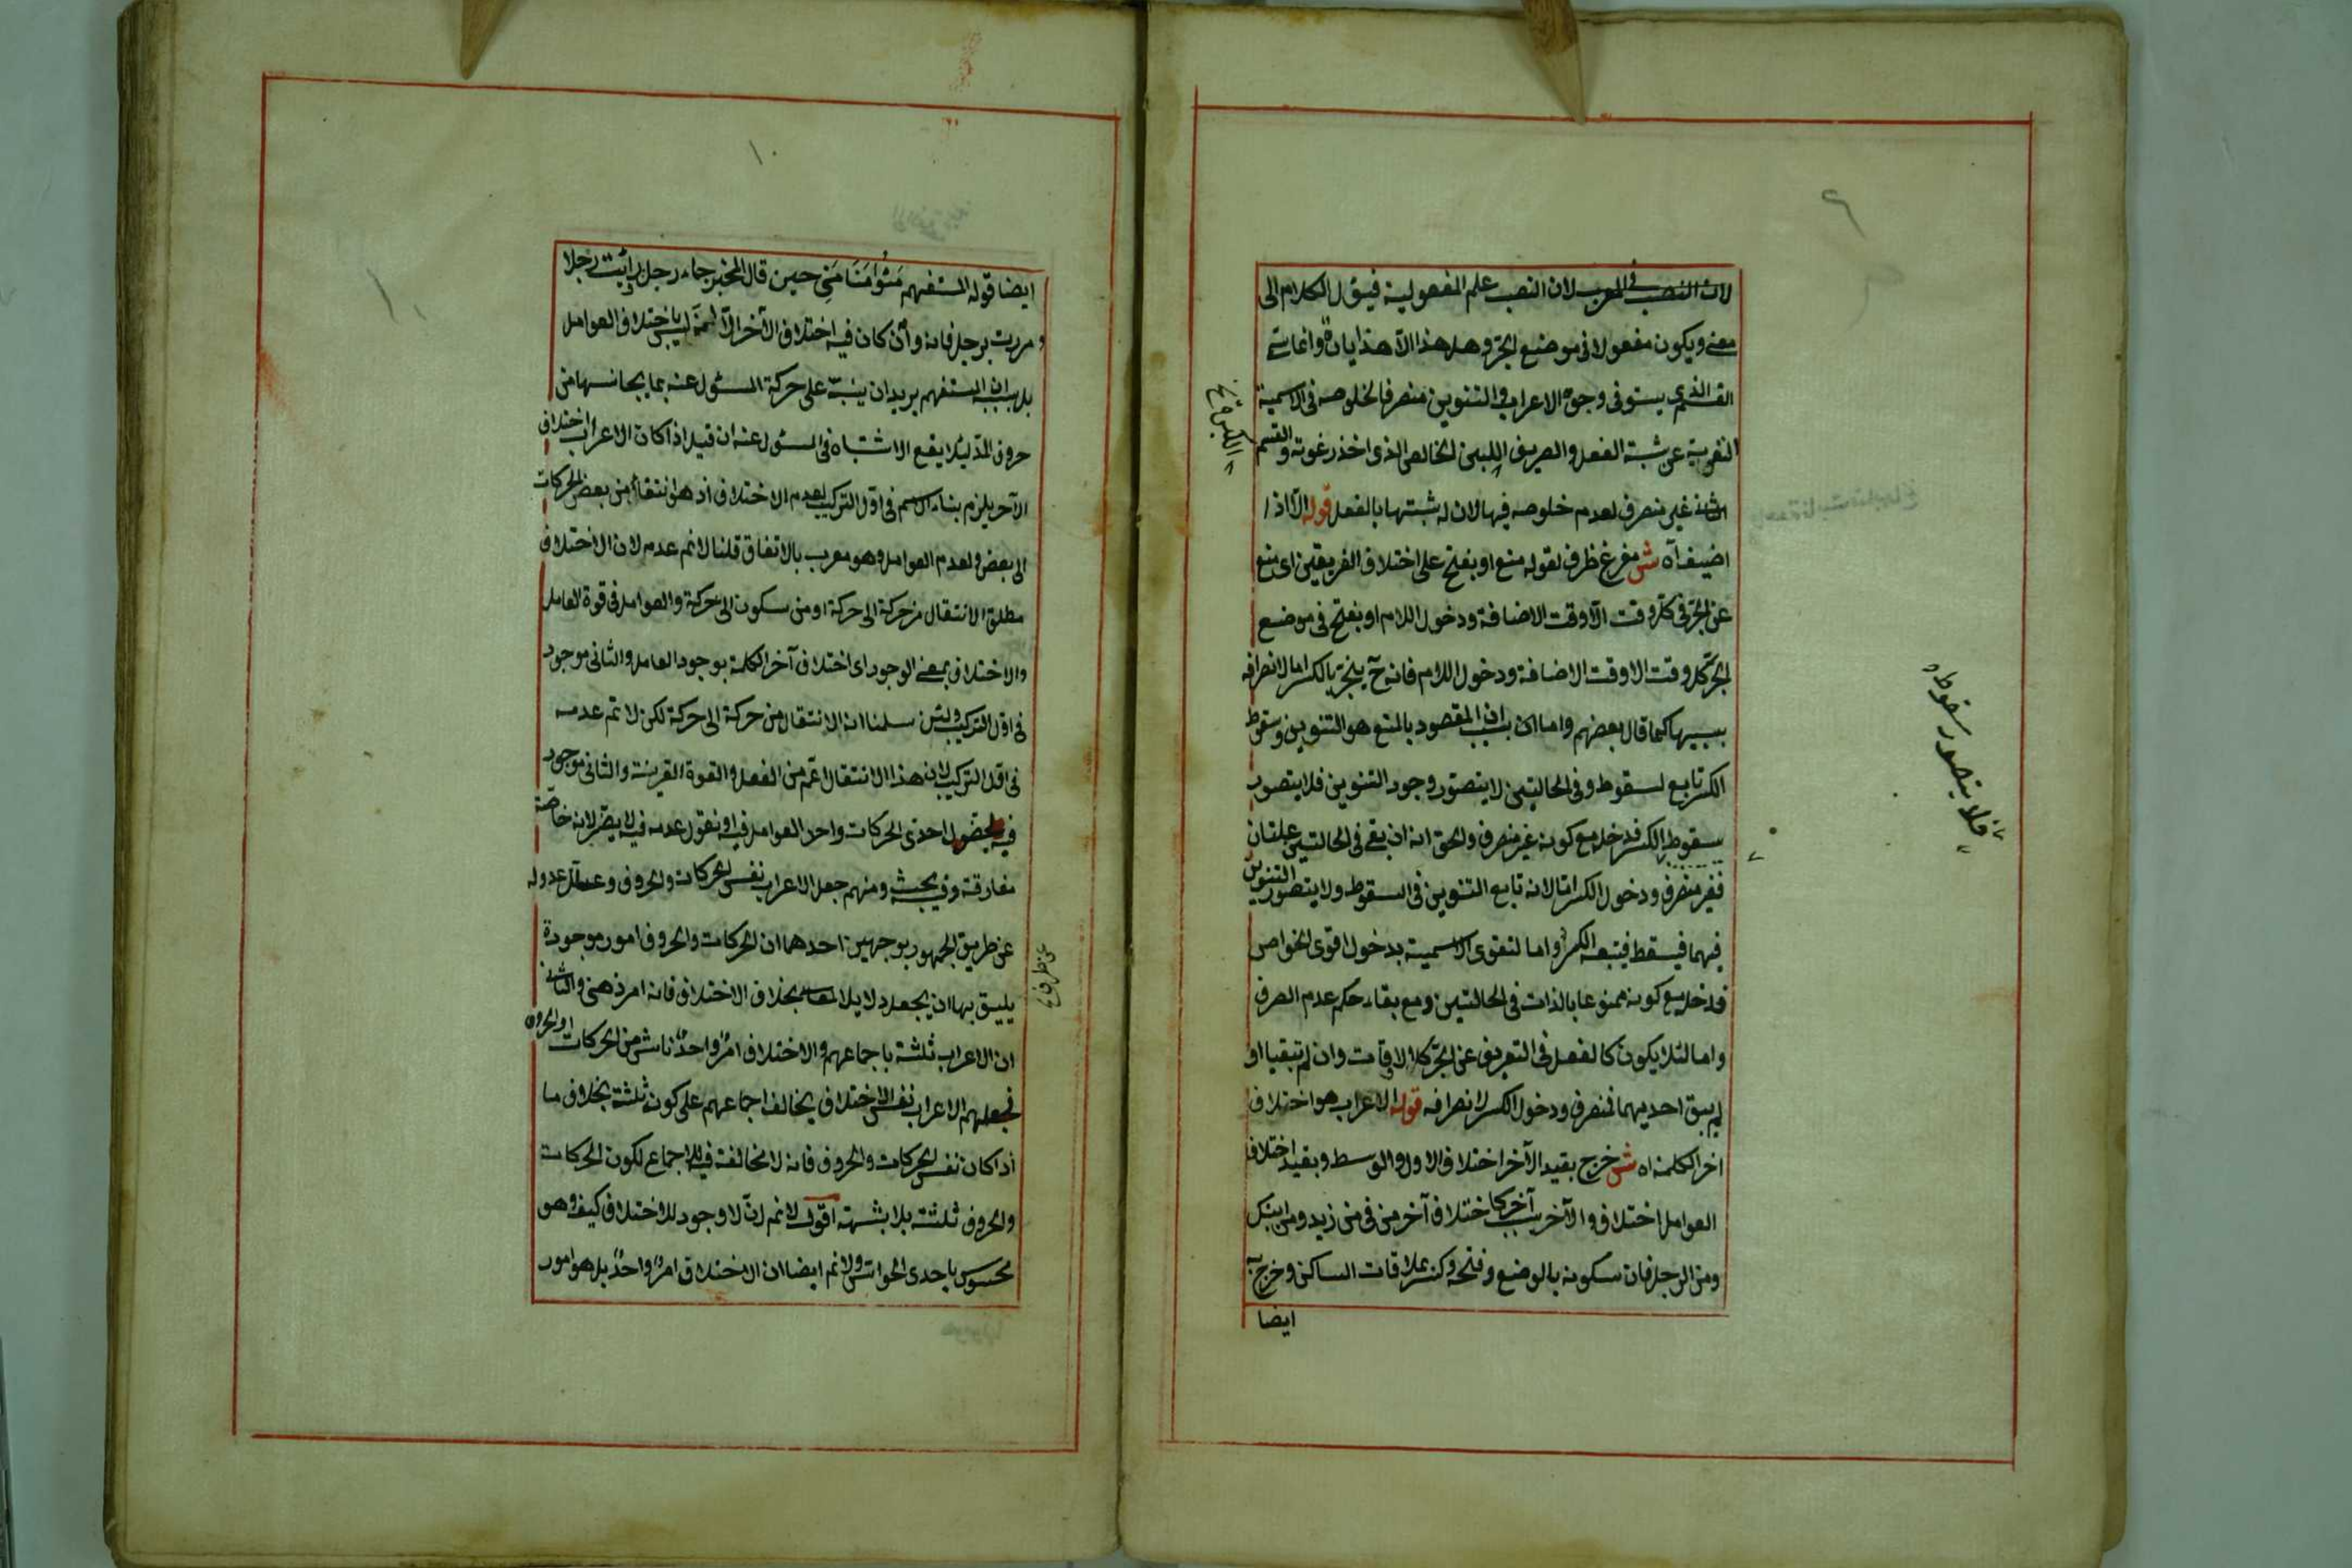 لان النصب في المعرب لان النصب علم المفعولية فيؤل الكلام الى
معنى ويكون مفعولا في موضع الجر وهل هذا الا هذايان وانما سمى
القسم الذى يستوفى وجوه الاعراب والتنوين منصرفا لخلوصه فى الاسمية
عن شبه الفعل والصريف اللبن الخالص الذى اخذ رغوته والقسم
الثانى غير منصرف لعدم خلوصه فيها لان له شبها بالفعل قوله الا اذا
اضيف آه ش مفرغ ظرف لقوله منع او يفتح على اختلاف الفريقين اى منع
عن الجر فى كل وقت الا وقت الاضافة ودخول اللام او يفتح فى موضع
الجر كل وقت الا وقت الاضافة ودخول اللام فانه ح ينجر بالكسر اما لانصرافه
بسببها كما قال بعضهم واما لان المقصود بالمنع هو التنوين وسقوط
الكسر تابع لسقوطه وفى الحالتين لا يتصور وجود التنوين فلا يتصور
سقوط الكسر فدخل مع كونه غير منصرف والحق انه ان بقى فى الحالتين علتان
فغير منصرف ودخول الكسر اما لانه تابع التنوين فى السقوط ولا يتصور التنوين
فيهما فيسقط فيتبعه الكسر واما لتقوى الاسمية بدخول اقوى الخواص
فدخل مع كونه ممنوعا بالذات فى الحالتين ومع بقاء حكم عدم الصرف
واما لئلا يكون كالفعل فى التعرى عن الجر كل الاوقات وان لم تبقيا او
لم يبق احديهما فمنصرف ودخول الكسر لانصرافه قوله الاعراب هو اختلاف
اخر الكلمة اه ش خرج بقيد الآخر اختلاف الاول والوسط وبقيد اختلاف
العوامل اختلاف الآخر بسبب آخر كاختلاف آخر من فى من زيد ومن ابنك
ومن الرجل فان سكونه بالوضع وفتحه وكسره بملاقات الساكن وخرج به
ايضا
فلا يتصور سقوطه
٩
ايضا قوله المستفهم مَنُو اَو مَنَا مَنِى حين قال المخبر جاء رجل ورأيت رجلا
ومررت برجل فانه وان كان فيه اختلاف الآخر الا انه ليس باختلاف العوامل
بل بسبب ان المستفهم يريد ان ينبه على حركة المسئول عنه بما يجانسها من
حروف المد لئلا يقع الاشتباه فى المسئول عنه ان قيل اذا كان الاعراب اختلاف
الآخر يلزم بناء الاسم فى اول التركيب لعدم الاختلاف اذ هو انتقال من بعض الحركات
الى بعض ولعدم العوامل وهو معرب بالاتفاق قلنا لا نم عدمه لان الاختلاف
مطلق الانتقال من حركة الى حركة او من سكون الى حركة والعوامل فى قوة العامل
والاختلاف بمعنى الوجود اى اختلاف آخر الكلمة بوجود العامل والثانى موجود
فى اول التركيب ولئن سلمنا ان الانتقال من حركة الى حركة لكن لا نم عدمه
فى اول التركيب لان هذا الانتقال اعم من الفعل والقوة القريبة والثانى موجود
فيه لحصول احدى الحركات واحد العوامل فيه او نقول عدمه فيه لا يضر لانه خاصة
مفارقة وفيه بحث ومنهم جعل الاعراب نفس الحركات والحروف وعلل عدوله
عن طريق الجمهور بوجهين احدهما ان الحركات والحروف امور موجودة
يليق بها ان يجعل دلايل المعانى بخلاف الاختلاف فانه امر ذهنى والثانى
ان الاعراب ثلثة باجماعهم والاختلاف امر واحد ناشى من الحركات والحروف
فجعلهم الاعراب نفس الاختلاف يخالف اجماعهم على كونه ثلثة بخلاف ما
اذا كان نفس الحركات والحروف فانه لا مخالفة فيه للاجماع لكون الحركات
والحروف ثلثة بلا شبهة اقول لا نم ان لا وجود للاختلاف كيف وهو
محسوس باحدى الحواس ولا نم ايضا ان الاختلاف امر واحد بل هو امور
١٠
١٠